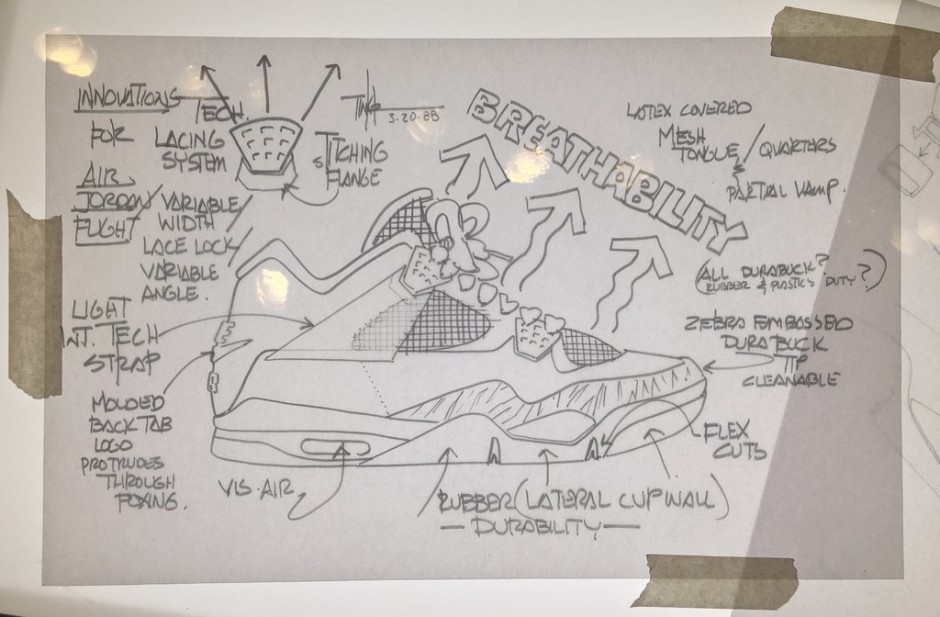 INNOVATIONS
FOR
AIR
JORDAN/
FLIGHT
TECH.
LACING
SYSTEM
STICHING
FLANGE
VARIABLE/
WIDTH
LACE LOCK/
VARIABLE
ANGLE.
LIGHT
WT. TECH
STRAP
MOLDED
BACK TAB
LOGO
PROTRUDES
THROUGH
FOXING.
3.20.88
BREATHABILITY
LATEX COVERED
MESH
TONGUE/QUARTERS
PARTIAL VAMP.
(ALL DURABUCK?
RUBBER & PLASTICS DUTY?)
ZEBRA EMBOSSED
DURABUCK
TIP
CLEANABLE
FLEX
CUTS
VIS-AIR
RUBBER (LATERAL CUP WALL)
— DURABILITY —